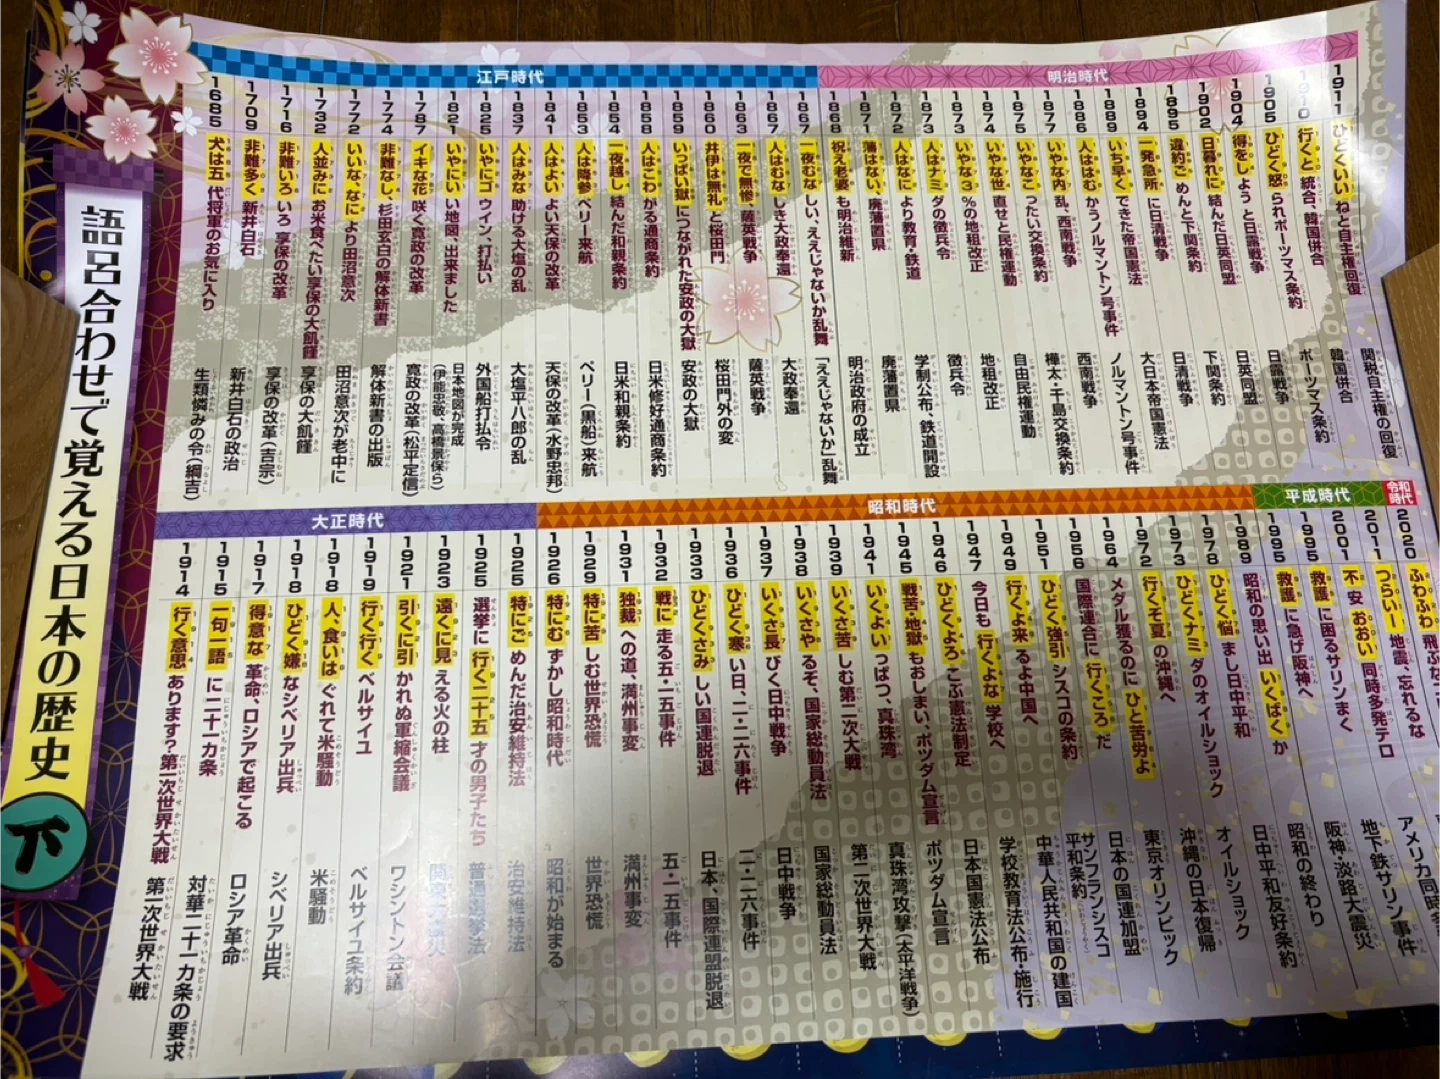 語呂合わせで覚える日本の歴史 下
江戸時代
1685 犬は五代将軍のお気に入り 生類憐みの令(綱吉)
1709 非難多く新井白石 新井白石の政治
1716 非難いろいろ享保の改革 享保の改革(吉宗)
1732 人並みにお米食べたい享保の大飢饉 享保の大飢饉
1772 いいな、なにより田沼意次 田沼意次が老中に
1774 非難なし、杉田玄白の解体新書 解体新書の出版
1787 イキな花咲く寛政の改革 寛政の改革(松平定信)
1821 いやにいい地図、出来ました 日本地図が完成(伊能忠敬、高橋景保ら)
1825 いやにゴウイン、打払い 外国船打払令
1837 人はみな助ける大塩の乱 大塩平八郎の乱
1841 人はよいよい天保の改革 天保の改革(水野忠邦)
1853 人は降参ペリー来航 ペリー(黒船)来航
1854 一夜越し結んだ和親条約 日米和親条約
1858 人はこわがる通商条約 日米修好通商条約
1859 いっぱい獄につながれた安政の大獄 安政の大獄
1860 井伊は無礼と桜田門 桜田門外の変
1863 一夜で無惨、薩英戦争 薩英戦争
1867 人はむなしき大政奉還 大政奉還
1867 一夜むなしい、ええじゃないか乱舞 「ええじゃないか」乱舞
明治時代
1868 祝え老婆も明治維新 明治政府の成立
1871 藩はない、廃藩置県 廃藩置県
1872 人はなにより教育・鉄道 学制公布、鉄道開設
1873 人はナミダの徴兵令 徴兵令
1873 いやな3%の地租改正 地租改正
1874 いやな世直せと民権運動 自由民権運動
1875 いやなこったい交換条約 樺太・千島交換条約
1877 いやな内乱、西南戦争 西南戦争
1886 人ははむかうノルマントン号事件 ノルマントン号事件
1889 いち早くできた帝国憲法 大日本帝国憲法
1894 一発急所に日清戦争 日清戦争
1895 違約ごめんと下関条約 下関条約
1902 日暮れに結んだ日英同盟 日英同盟
1904 得をしようと日露戦争 日露戦争
1905 ひどく怒られポーツマス条約 ポーツマス条約
1910 行くと統合、韓国併合 韓国併合
1911 ひどくいいねと自主権回復 関税自主権の回復
大正時代
1914 行く意思あります?第一次世界大戦 第一次世界大戦
1915 一句一語に二十一カ条 対華二十一カ条の要求
1917 得意な革命、ロシアで起こる ロシア革命
1918 ひどく嫌なシベリア出兵 シベリア出兵
1918 人、食いはぐれて米騒動 米騒動
1919 行く行くベルサイユ ベルサイユ条約
1921 引くに引かれぬ軍縮会議 ワシントン会議
1923 遠くに見える火の柱 関東大震災
1925 選挙に行く二十五才の男子たち 普通選挙法
1925 特にごめんだ治安維持法 治安維持法
昭和時代
1926 特にむずかし昭和時代 昭和が始まる
1929 特に苦しむ世界恐慌 世界恐慌
1931 独裁への道、満州事変 満州事変
1932 戦に走る五・一五事件 五・一五事件
1933 ひどくさみしい国連脱退 日本、国際連盟脱退
1936 ひどく寒い日、二・二六事件 二・二六事件
1937 いくさ長びく日中戦争 日中戦争
1938 いくさやるぞ、国家総動員法 国家総動員法
1939 いくさ苦しむ第二次大戦 第二次世界大戦
1941 いくよいっぱつ、真珠湾 真珠湾攻撃(太平洋戦争)
1945 戦苦し地獄もおしまい、ポツダム宣言 ポツダム宣言
1946 ひどくよろこぶ憲法制定 日本国憲法公布
1947 今日も行くよな学校へ 学校教育法公布・施行
1949 行くよ来るよ中国へ 中華人民共和国の建国
1951 ひどく強引シスコの条約 サンフランシスコ平和条約
1956 国際連合に行くころだ 日本の国連加盟
1964 メダル獲るのにひと苦労よ 東京オリンピック
1972 行くぞ夏の沖縄へ 沖縄の日本復帰
1973 ひどくナミダのオイルショック オイルショック
1978 ひどく悩まし日中平和 日中平和友好条約
1989 昭和の思い出いくばくか 昭和の終わり
平成時代
1995 救護に急げ阪神へ 阪神・淡路大震災
1995 救護に困るサリンまく 地下鉄サリン事件
2001 不安おおい同時多発テロ アメリカ同時多
2011 つらいー地震、忘れるな
令和時代
2020 ふわふわ飛ぶな